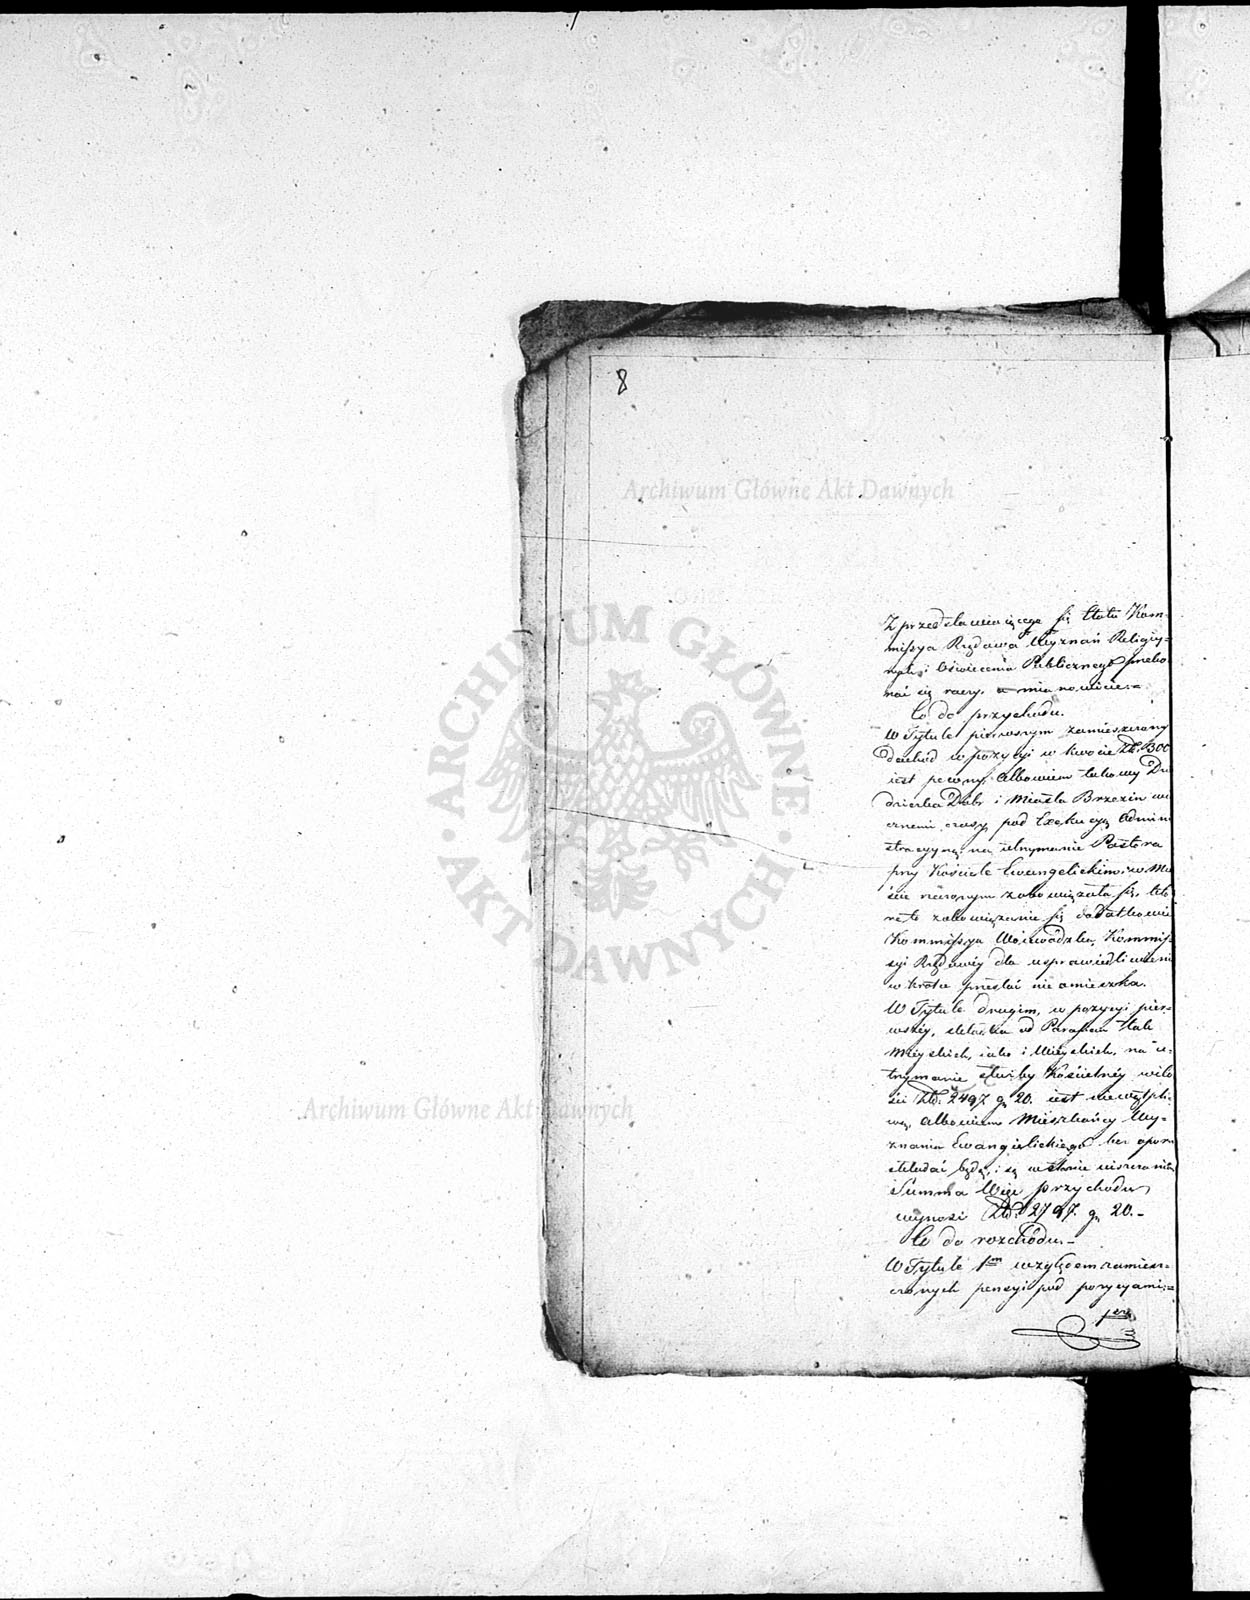 8
Z przedstawiaiącego się Etatu Kom-
missya Rządowa Wyznań Religiy-
nych i Oświecenia Publicznego przeko
nać się raczy, a mianowicie:=
Co do przychodu.
W Tytule pierwszym zamieszczony
dochód w pozycyi w kwocie Złt. 300
iest pewny, Albowiem takowy Dzie
dziczka Dóbr i Miasta Brzezin wie
cznemi czasy pod Exekucyą Admini
stracyyną, na utrzymanie Pastora
przy Kościele Ewangelickim w Mie
ście rzeczonym zobowiązała się, któ
re to zobowiązanie się dodatkowie
Kommissya Woiewódzka, Kommis-
syi Rządowéy dla usprawiedliwienia
w krótce przesłać nie omieszka.
W Tytule drugim, w pozycyi pier-
wszéy, składka od Parafian tak
Mieyskich, iako i Wieyskich, na u-
trzymanie służby Kościelnéy w ilo
ści Złt. 2497 gr 20. iest niewątpli-
wą, Albowiem Mieszkańcy Wy-
znania Ewangelickiego bez oporu
składać będą, i są w stanie uiszczenia
Summa Więc przychodu
wynosi Złt. 2797. gr 20.-
Co do rozchodu.-
W Tytule 1m względem zamiesz-
czonych pensyi pod pozycyami:=